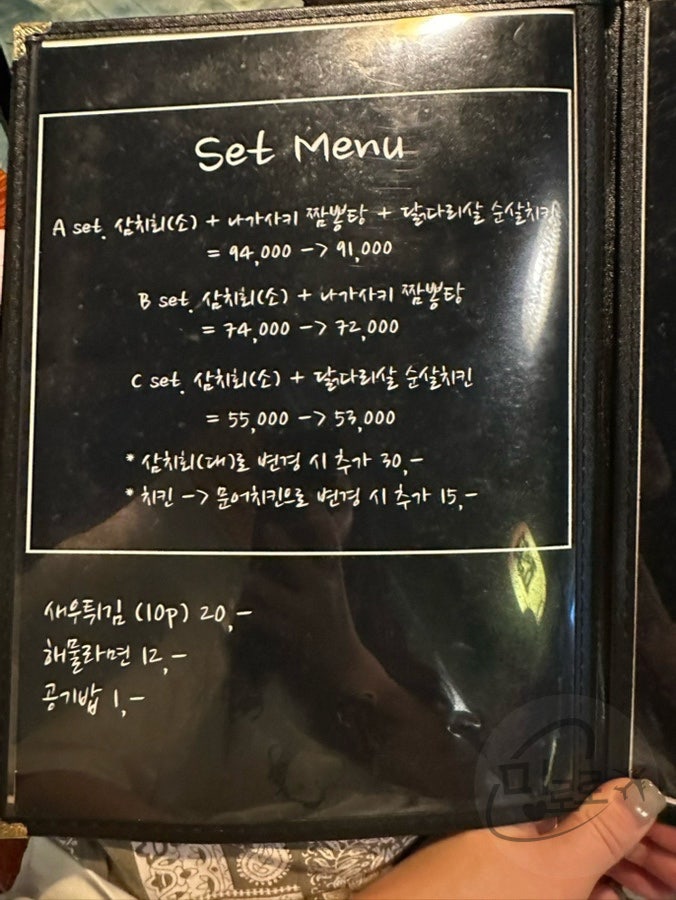 Set Menu
A set. 삼치회(소) + 나가사키 짬뽕탕 + 닭다리살 순살치킨
= 94,000 -> 91,000
B set. 삼치회(소) + 나가사키 짬뽕탕
= 74,000 -> 72,000
C set. 삼치회(소) + 닭다리살 순살치킨
= 55,000 -> 53,000
* 삼치회(대)로 변경 시 추가 30,-
* 치킨 -> 문어치킨으로 변경 시 추가 15,-
새우튀김 (10p) 20,-
해물라면 12,-
공기밥 1,-